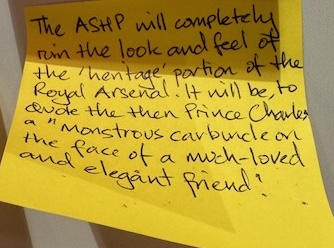 The ASHP will completely
ruin the look and feel of
the 'heritage' portion of the
Royal Arsenal. It will be, to
quote the then Prince Charles
a "monstrous carbuncle on
the face of a much-loved
and elegant friend".